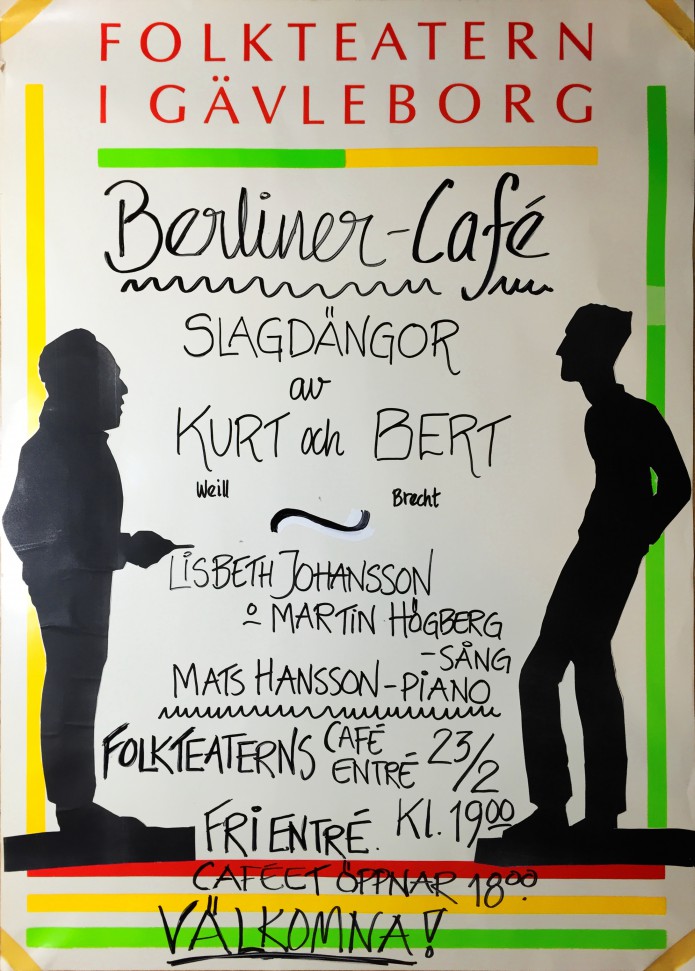 FOLKTEATERN
I GÄVLEBORG
Berliner-Café
SLAGDÄNGOR
av
KURT och BERT
Weill Brecht
LISBETH JOHANSSON
o MARTIN HÖGBERG
-SÅNG
MATS HANSSON-PIANO
FOLKTEATERNS CAFÉ ENTRÉ 23/2
FRI ENTRÉ. Kl. 1900
CAFÉET ÖPPNAR 1800.
VÄLKOMNA!